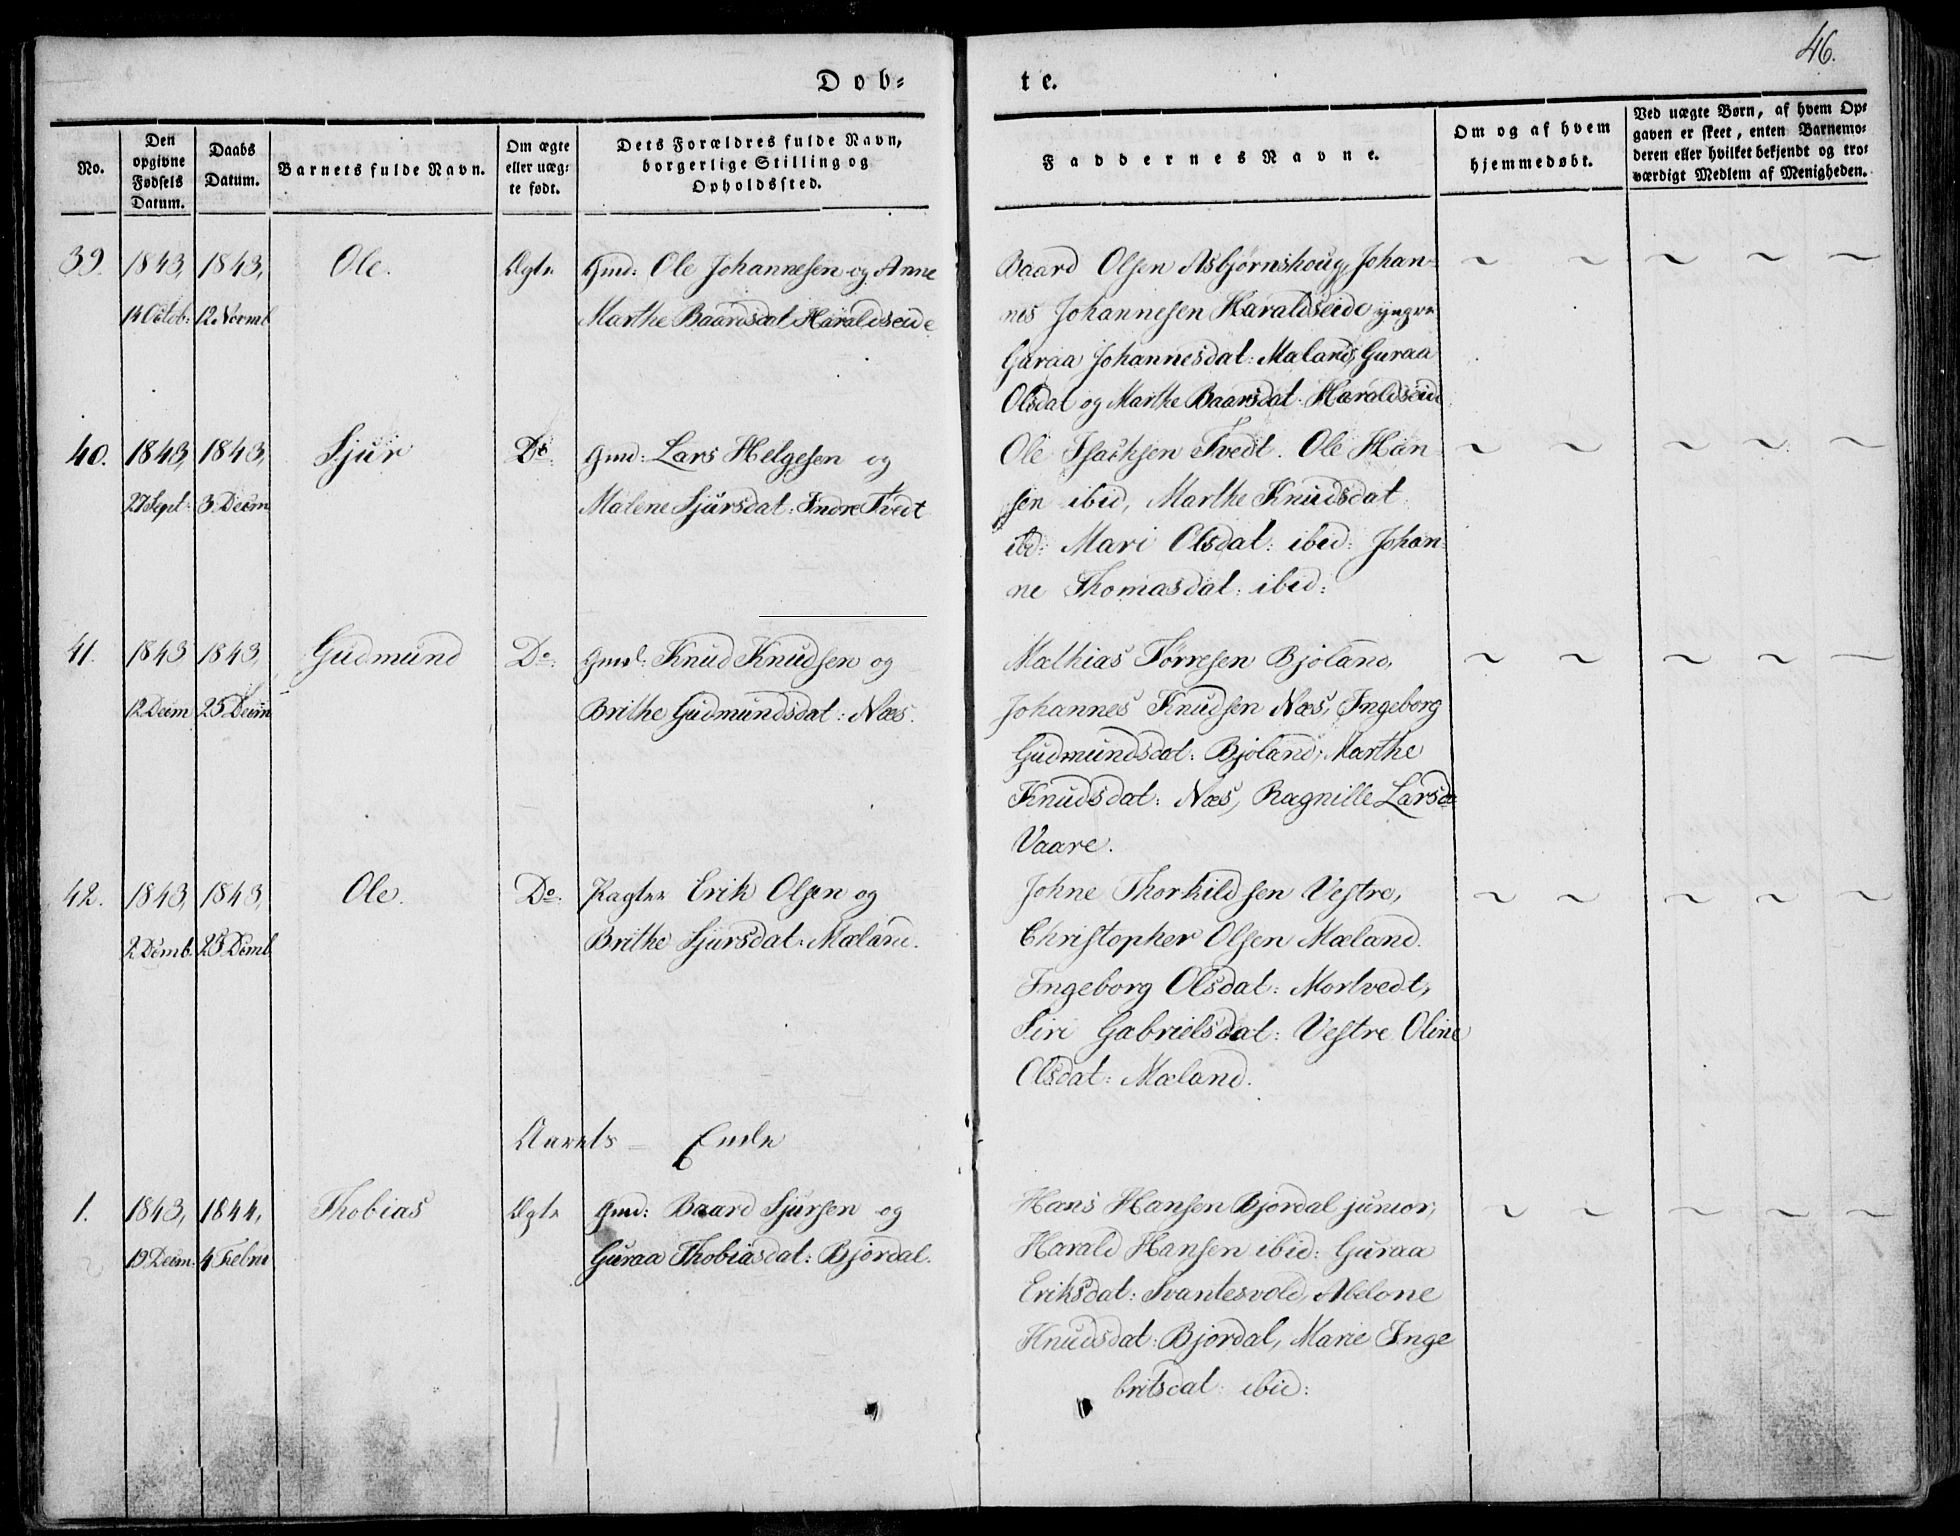 46.
Dob=
te.
No.
Den opgivne Fødsels Datum.
Daabs Datum.
Barnets fulde Navn.
Om ægte eller uæg=te født.
Dets Forældres fulde Navn, borgerlige Stilling og Opholdssted.
Faddernes Navne.
Om og af hvem hjemmedøbt.
Ved uægte Børn, af hvem Op=gaven er skeet, enten Barnemo=deren eller hvilket bekjendt og tro=værdigt Medlem af Menigheden.
39. 1843, 1843, Ole. Ægte Gmd: Ole Johannesen og Anne
14 Octob: 12 Novmb Marthe Baardsdat Haraldseide
Baard Olsen Asbjørnshoug, Johan-
nes Johannesen Haraldseide yngre
Guraa Johannesdat: Maland, Guraa
Olsdat og Marthe Baarsdat: Haraldseid
40. 1843, 1843, Sjur Do Gmd: Lars Helgesen og
27 Sept: 3 Decm Malene Sjursdat: Indre Tvedt
Ole Isachsen Tvedt. Ole Han
sen ibid, Marthe Knudsdat
ibd: Mari Olsdat: ibid: Johan
ne Thomasdat: ibid:
41. 1843 1843, Gudmund Do: Gmd: Knud Knudsen og
12 Decm 25 Decm Brithe Gudmundsdat: Næs.
Mathias Tørresen Bjoland,
Johannes Knudsen Næs, Ingeborg
Gudmundsdat: Bjoland, Marthe
Knudsdat: Næs, Ragnille Larsd
Vaare.
42. 1843, 1843, Ole. Do: Erik Olsen og
2 Decmb. 25 Decmb Brithe Sjursdat: Mæland.
Johne Thorkildsen Vestre,
Christopher Olsen Mæland.
Ingeborg Olsdat: Mortvedt,
Siri Gabrielsdat: Vestre Oline
Olsdat: Mæland.
Aarets Ende
1. 1843, 1844, Thobias Ægte Gmd: Baard Sjursen og
19 Decm: 4 Febru Guraa Thobiasdat: Bjordal.
Hans Hansen Bjordal junior,
Harald Hansen ibid: Guraa
Eriksdat: Svantesvold, Abelone
Knudsdat: Bjordal, Marie Inge
britsdat: ibid: